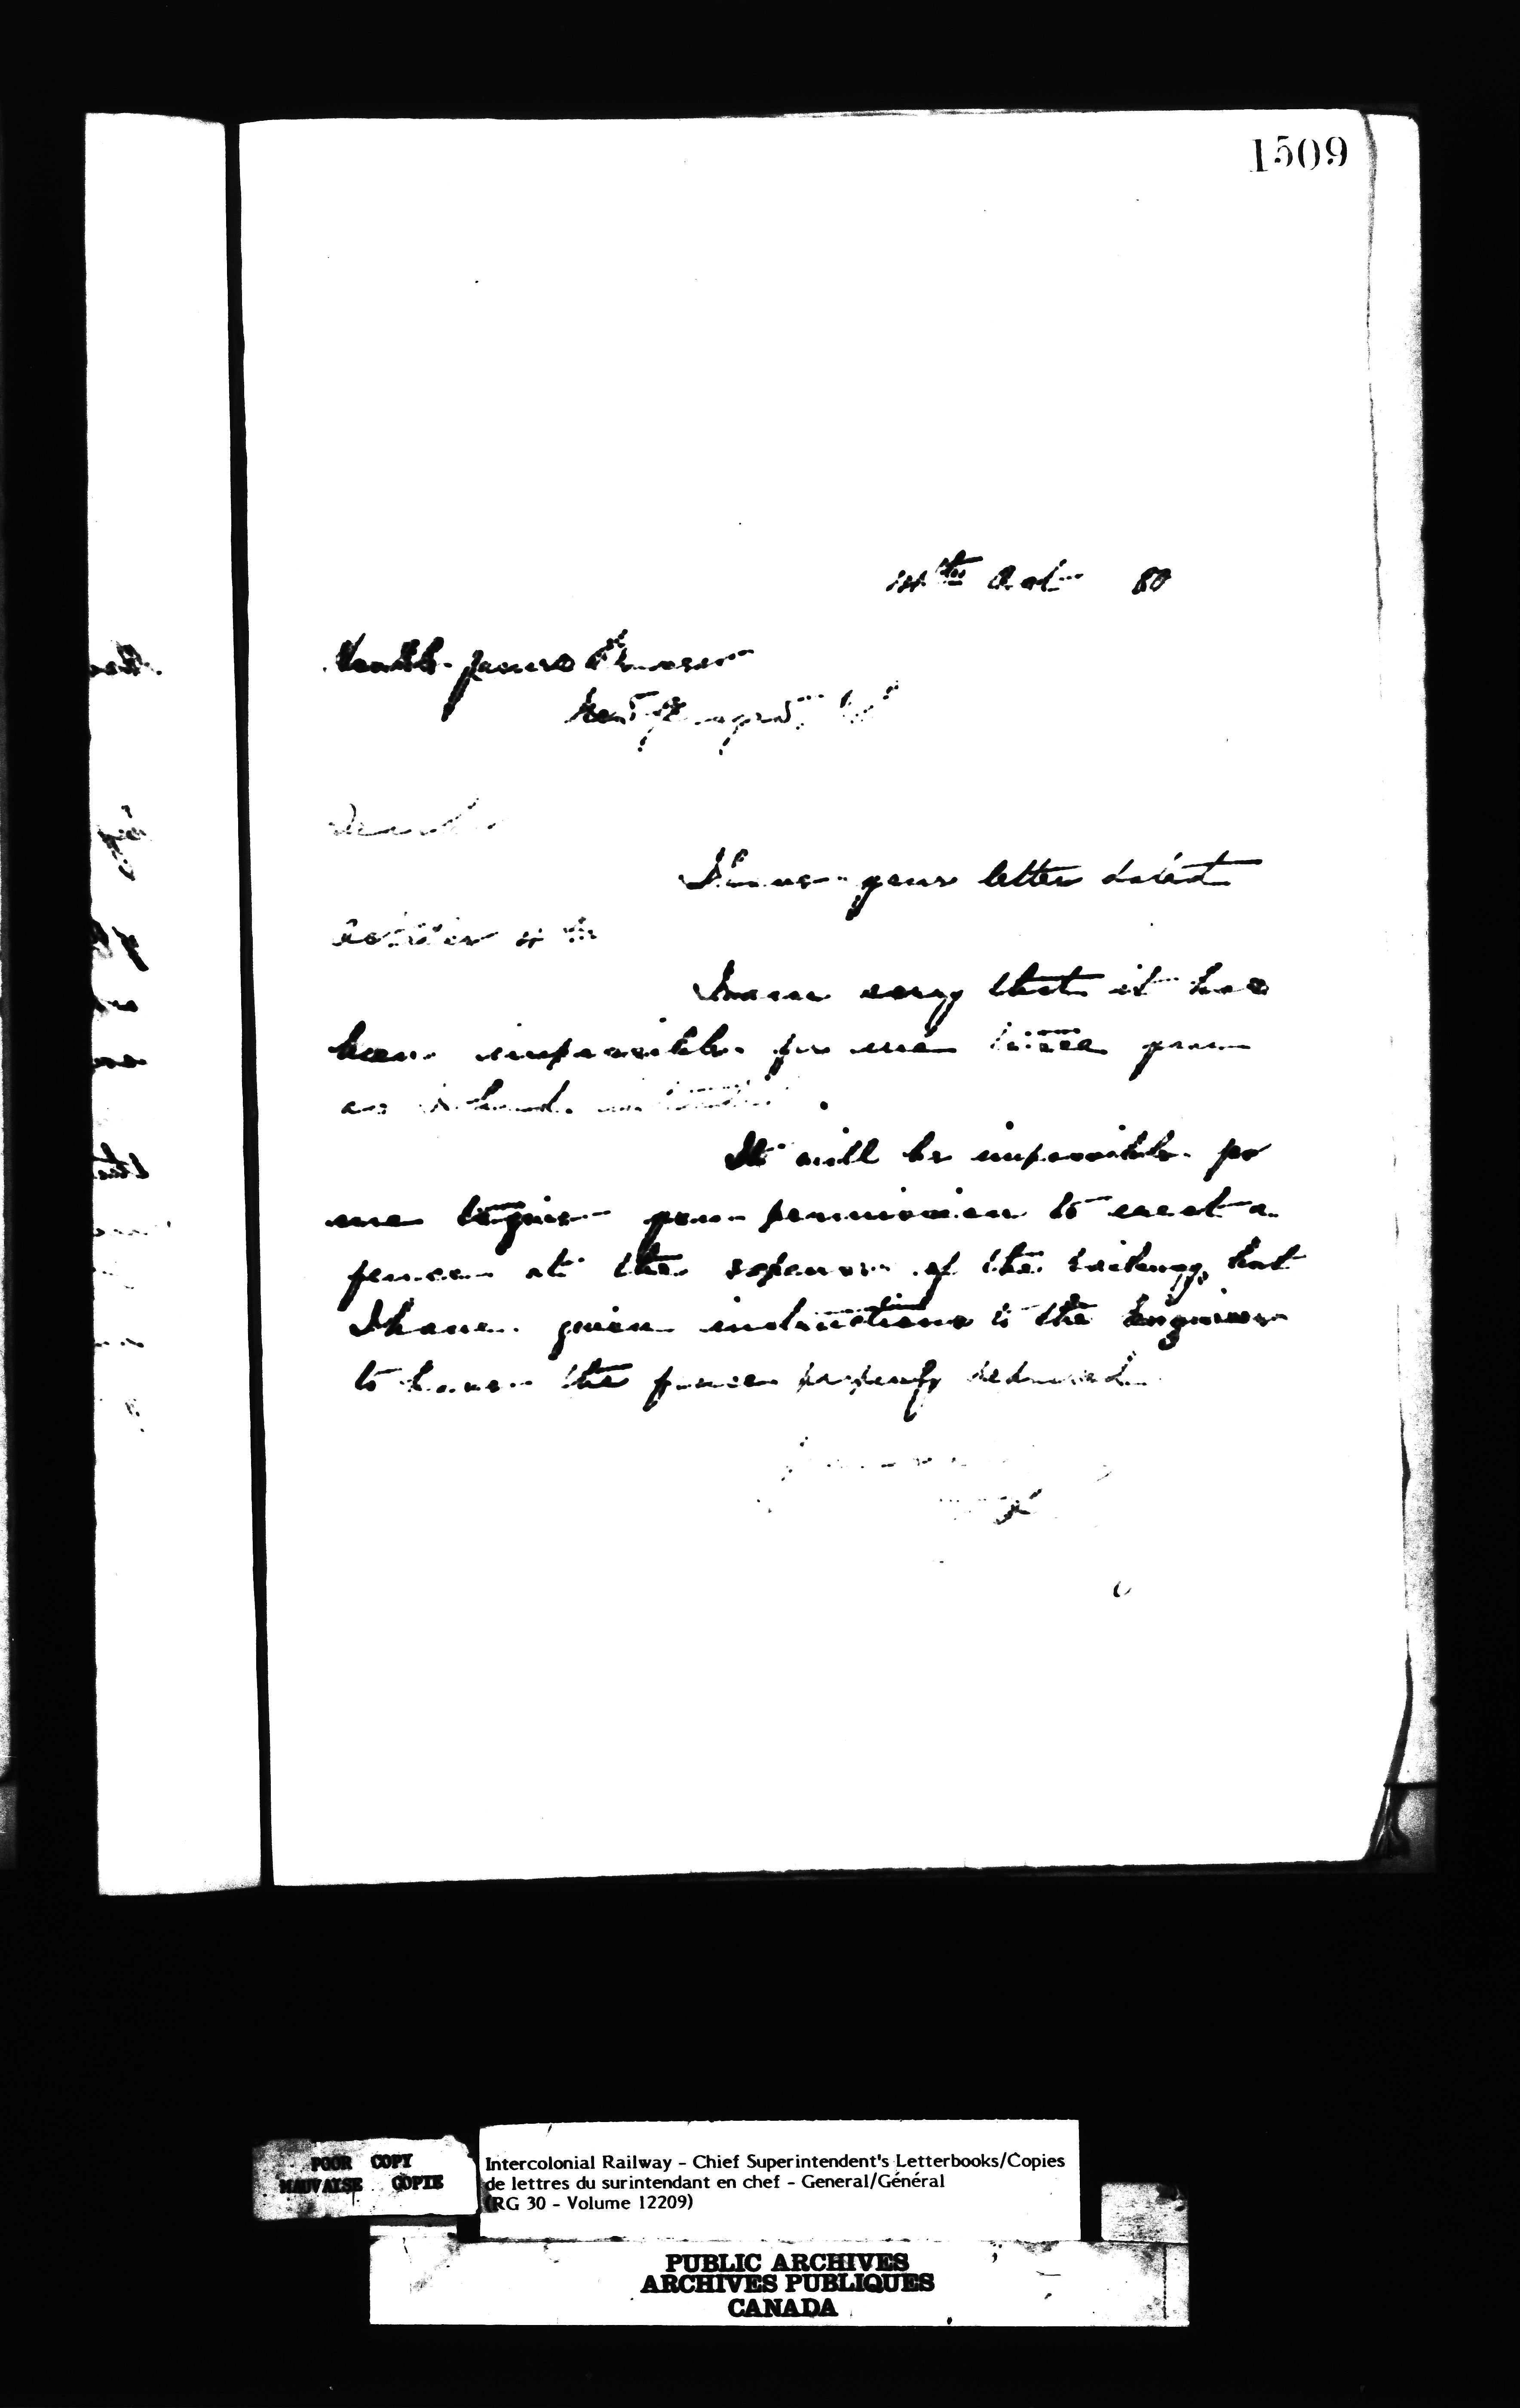 1509
14th Oct 80
James
New Glasgow
Dear Sir
I have your letter dated
October 4th
I am sorry that it has
been impossible for me to see you
as
It will be impossible for
me to give you permission to erect a
fence at the expense of the railway, but
I have given instructions to the Engineer
to have the fence properly
POOR COPY
MAUVAISE COPIE
Intercolonial Railway - Chief Superintendent's Letterbooks/Copies
de lettres du surintendant en chef - General/Général
(RG 30 - Volume 12209)
PUBLIC ARCHIVES
ARCHIVES PUBLIQUES
CANADA